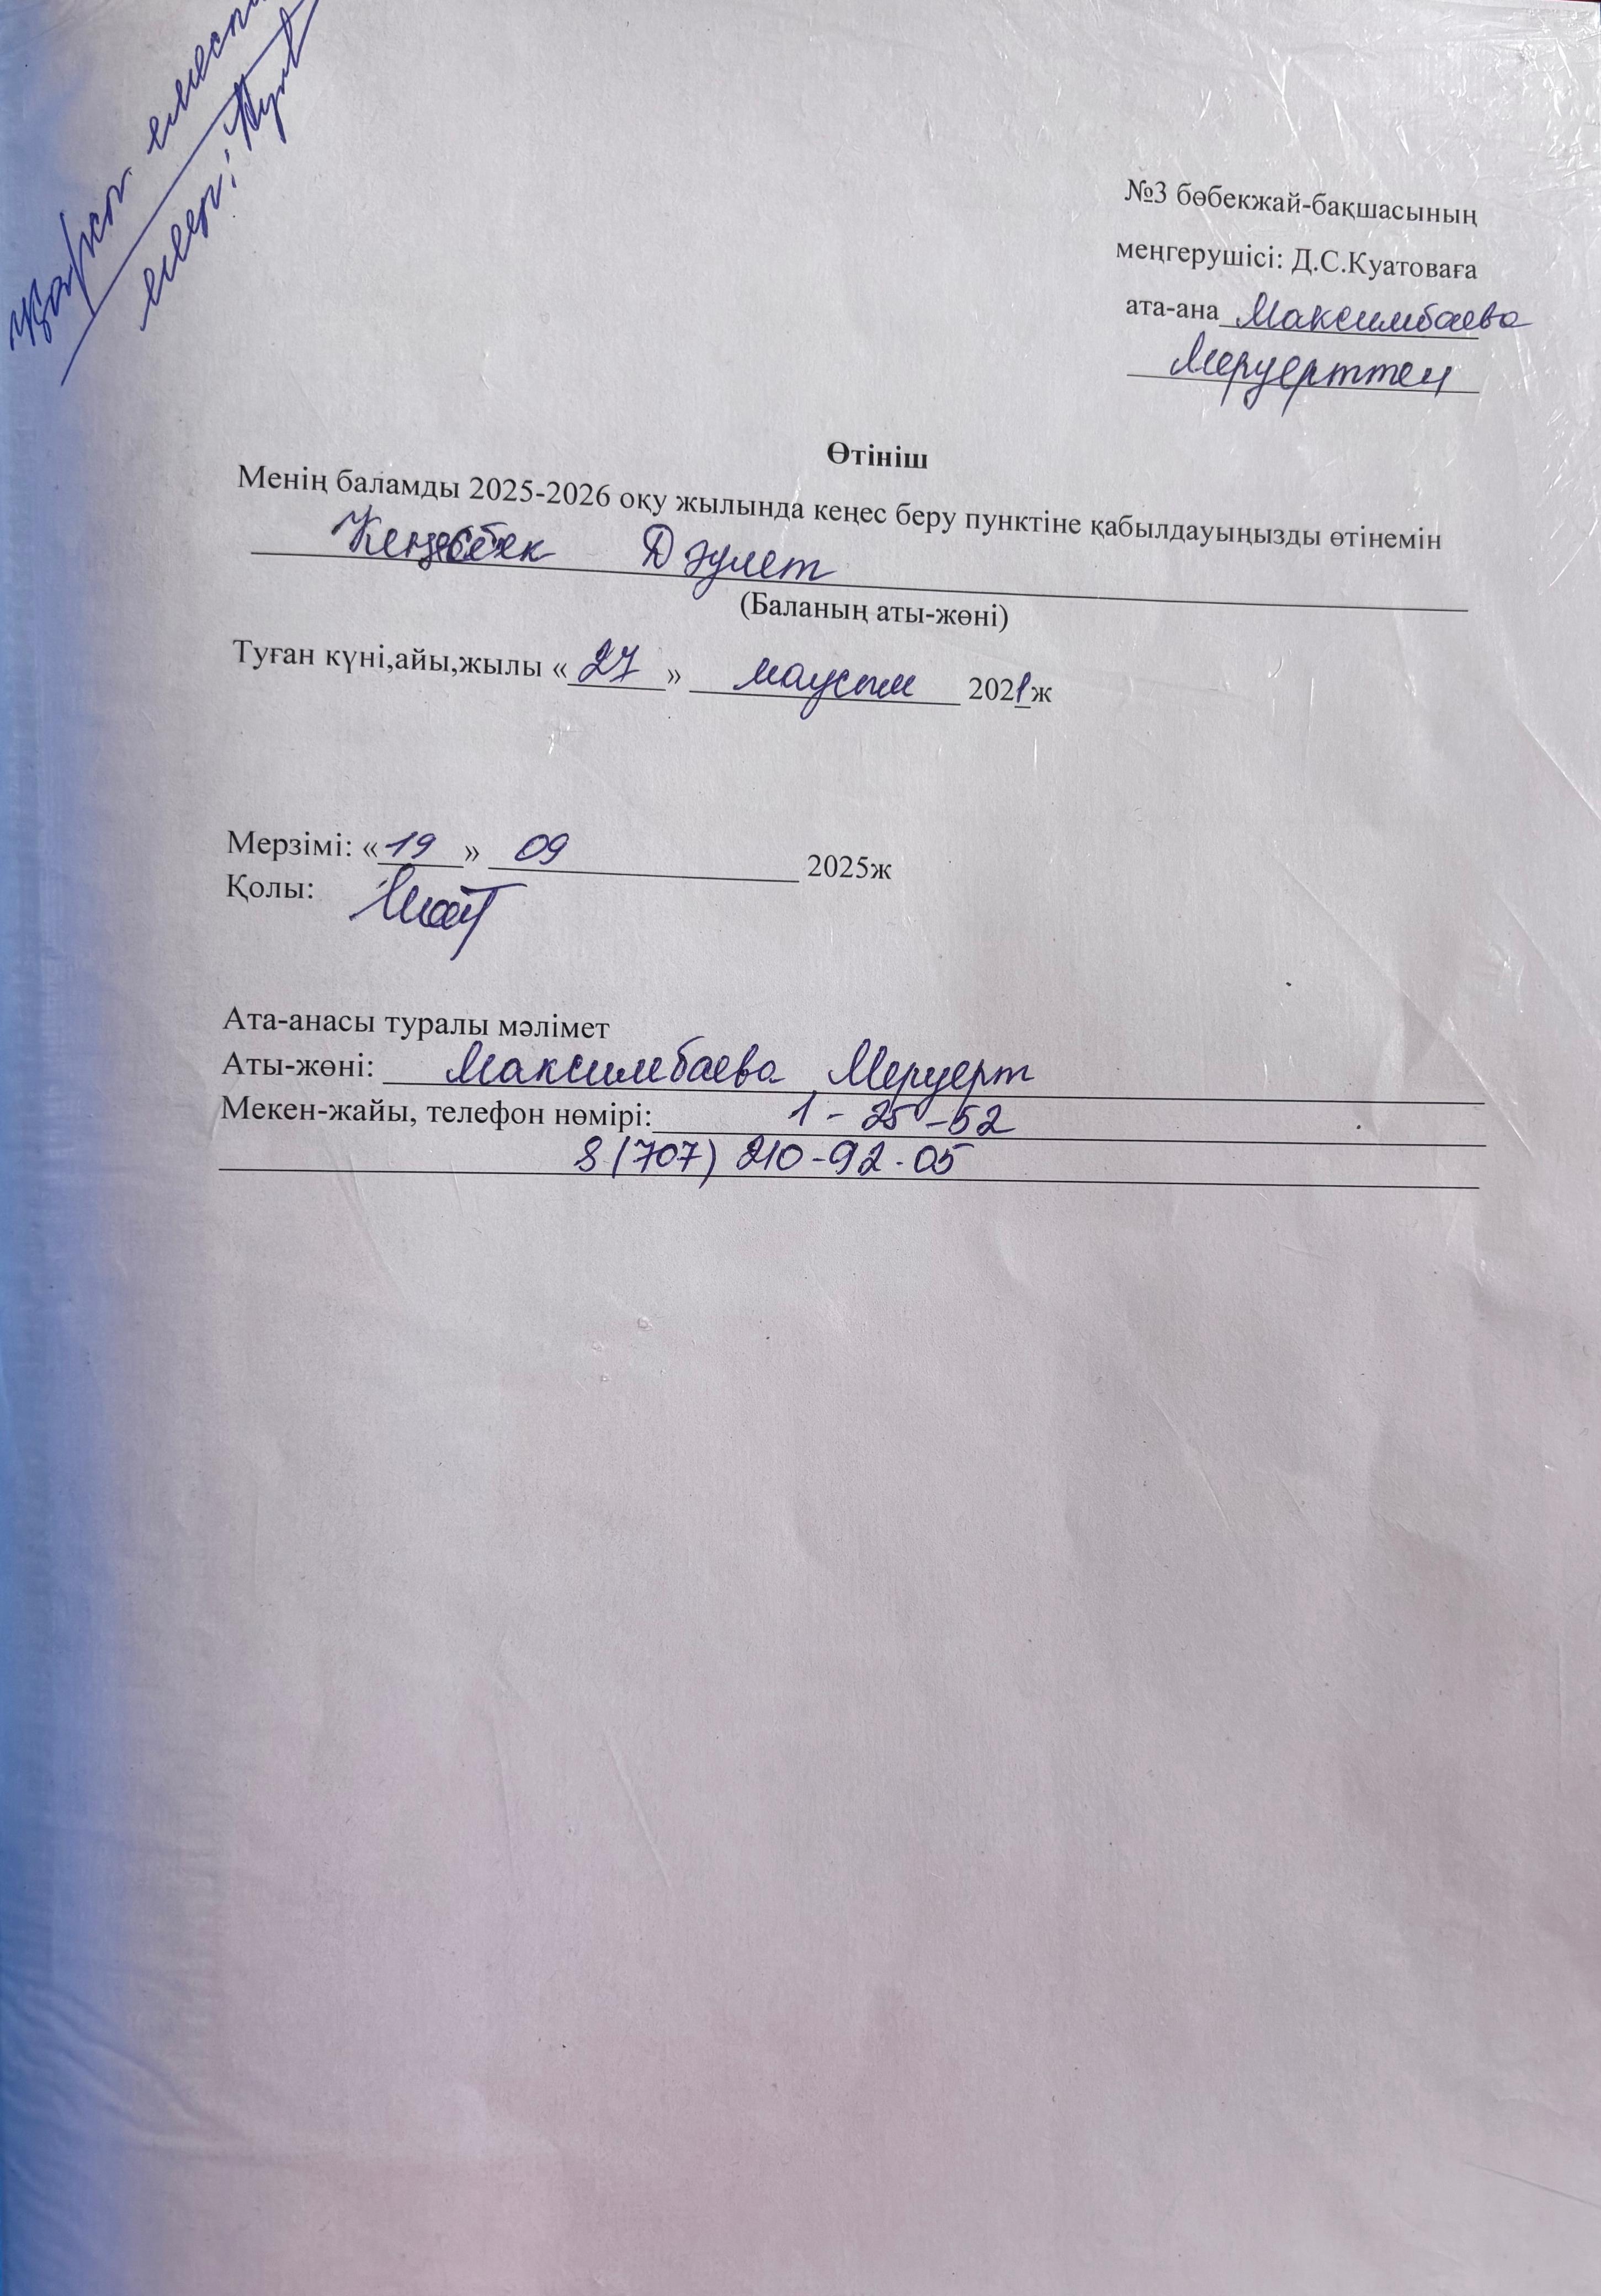 Қаржы
№3 бөбекжай-бақшасының
меңгерушісі: Д.С.Куатоваға
ата-ана Максимбаева
Меруерттен
Өтініш
Менің баламды 2025-2026 оқу жылында кеңес беру пунктіне қабылдауыңызды өтінемін
Кеңесбек Дәулет
(Баланың аты-жөні)
Туған күні,айы,жылы «27» маусым 2021ж
Мерзімі: «19» 09 2025ж
Қолы:
Ата-анасы туралы мәлімет
Аты-жөні: Максимбаева Меруерт
Мекен-жайы, телефон нөмірі: 1-25-52
8(707) 210-92-05